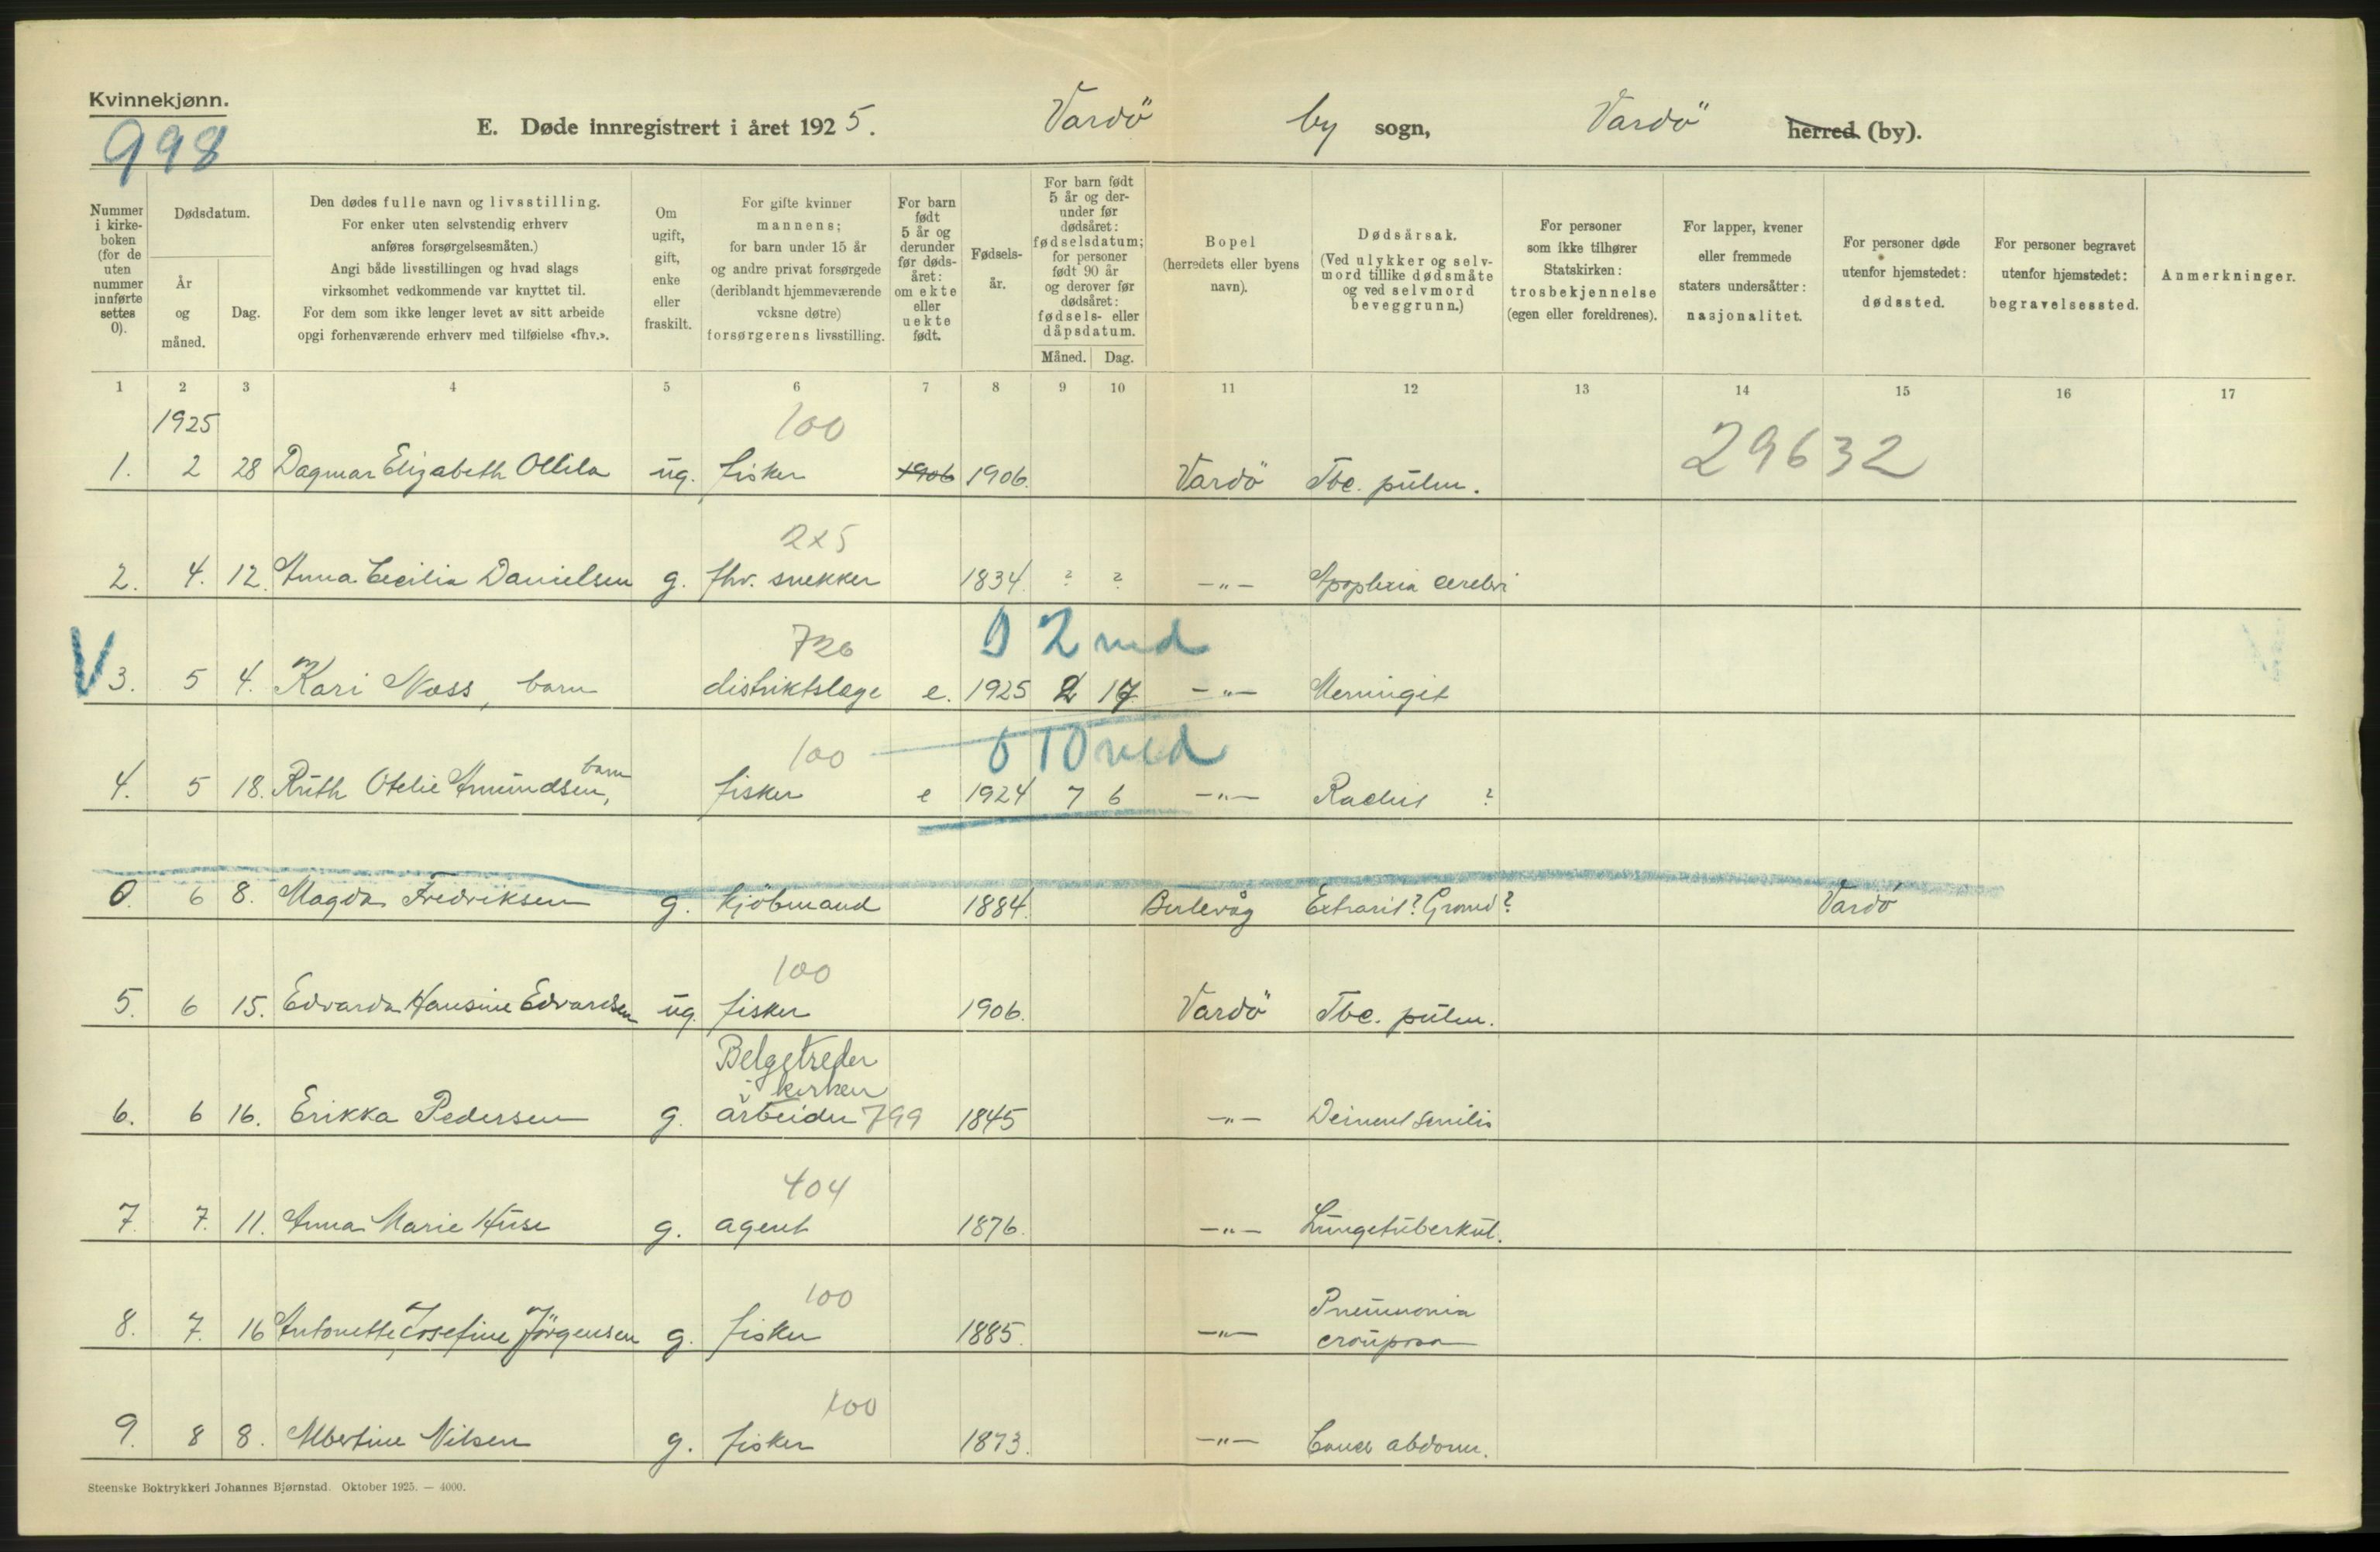 Kvinnekjønn.
998
E. Døde innregistrert i året 1925. Vardö by sogn, Vardö herred (by).
Nummer i kirkeboken (for de uten nummer innførte settes 0).
Dødsdatum.
År og måned.
Dag.
Den dødes fulle navn og livsstilling.
For enker uten selvstendig erhverv
anføres forsørgelsesmåten.)
Angi både livsstillingen og hvad slags
virksomhet vedkommende var knyttet til.
For dem som ikke lenger levet av sitt arbeide
opgi forhenværende erhverv med tilføielse «fhv.».
Om ugift, gift, enke eller fraskilt.
For gifte kvinner
mannens;
for barn under 15 år
og andre privat forsørgede
(deriblandt hjemmeværende
voksne døtre)
forsørgerens livsstilling.
For barn født 5 år og derunder før dødsåret: om ekte eller uekte født.
Fødselsår.
For barn født 5 år og derunder før dødsåret: fødselsdatum; for personer født 90 år og derover før dødsåret: fødsels- eller dåpsdatum.
Måned. Dag.
Bopel
(herredets eller byens
navn).
Dødsårsak.
(Ved ulykker og selvmord tillike dødsmåte
og ved selvmord
beveggrunn.)
For personer
som ikke tilhører
Statskirken:
trosbekjennelse
(egen eller foreldrenes).
For lapper, kvener
eller fremmede
staters undersåtter:
nasjonalitet.
For personer døde
utenfor hjemstedet:
dødssted.
For personer begravet
utenfor hjemstedet:
begravelsessted.
Anmerkninger.
1 2 3 4 5 6 7 8 9 10 11 12 13 14 15 16 17
1925 100
29632
1. 2 28 Dagmar Elizabeth Ollila ug. fisker 1906 1906. Vardö Tbc. pulm.
2x5
2. 4. 12. Anna Cecilia Danielsen g. fhv. snekker 1834. ? ? -"- Apoplexia cerebri
726 0 2 md
V 3. 5 4. Kari Næss, barn distriktslæge e. 1925 2 17 -"- Meningit
100 0 10 md
4. 5 18. Ruth Otelie Amundsen, barn fisker e 1924 7 6 -"- Rachit ?
0. 6 8. Magda Fredriksen g. kjöbmand 1884. Berlevåg Extraut? Gravid? Vardö
100
5. 6 15. Edvarda Hansine Edvardsen ug. fisker 1906. Vardö Tbc. pulm.
Belgetreder
i kirken
6. 6 16. Erikka Pedersen g. arbeider 799 1845 -"- Dement senilis
404
7. 7. 11. Anna Marie Huse g. agent 1876. -"- Lungetuberkul.
100
8. 7. 16 Antonette Josefine Jörgensen g. fisker 1885. -"- Pneumonia
crouposa
100
9. 8 8. Albertine Nilsen g. fisker 1873. -"- Cancer abdom.
Steenske Boktrykkeri Johannes Bjørnstad. Oktober 1925. — 4000.